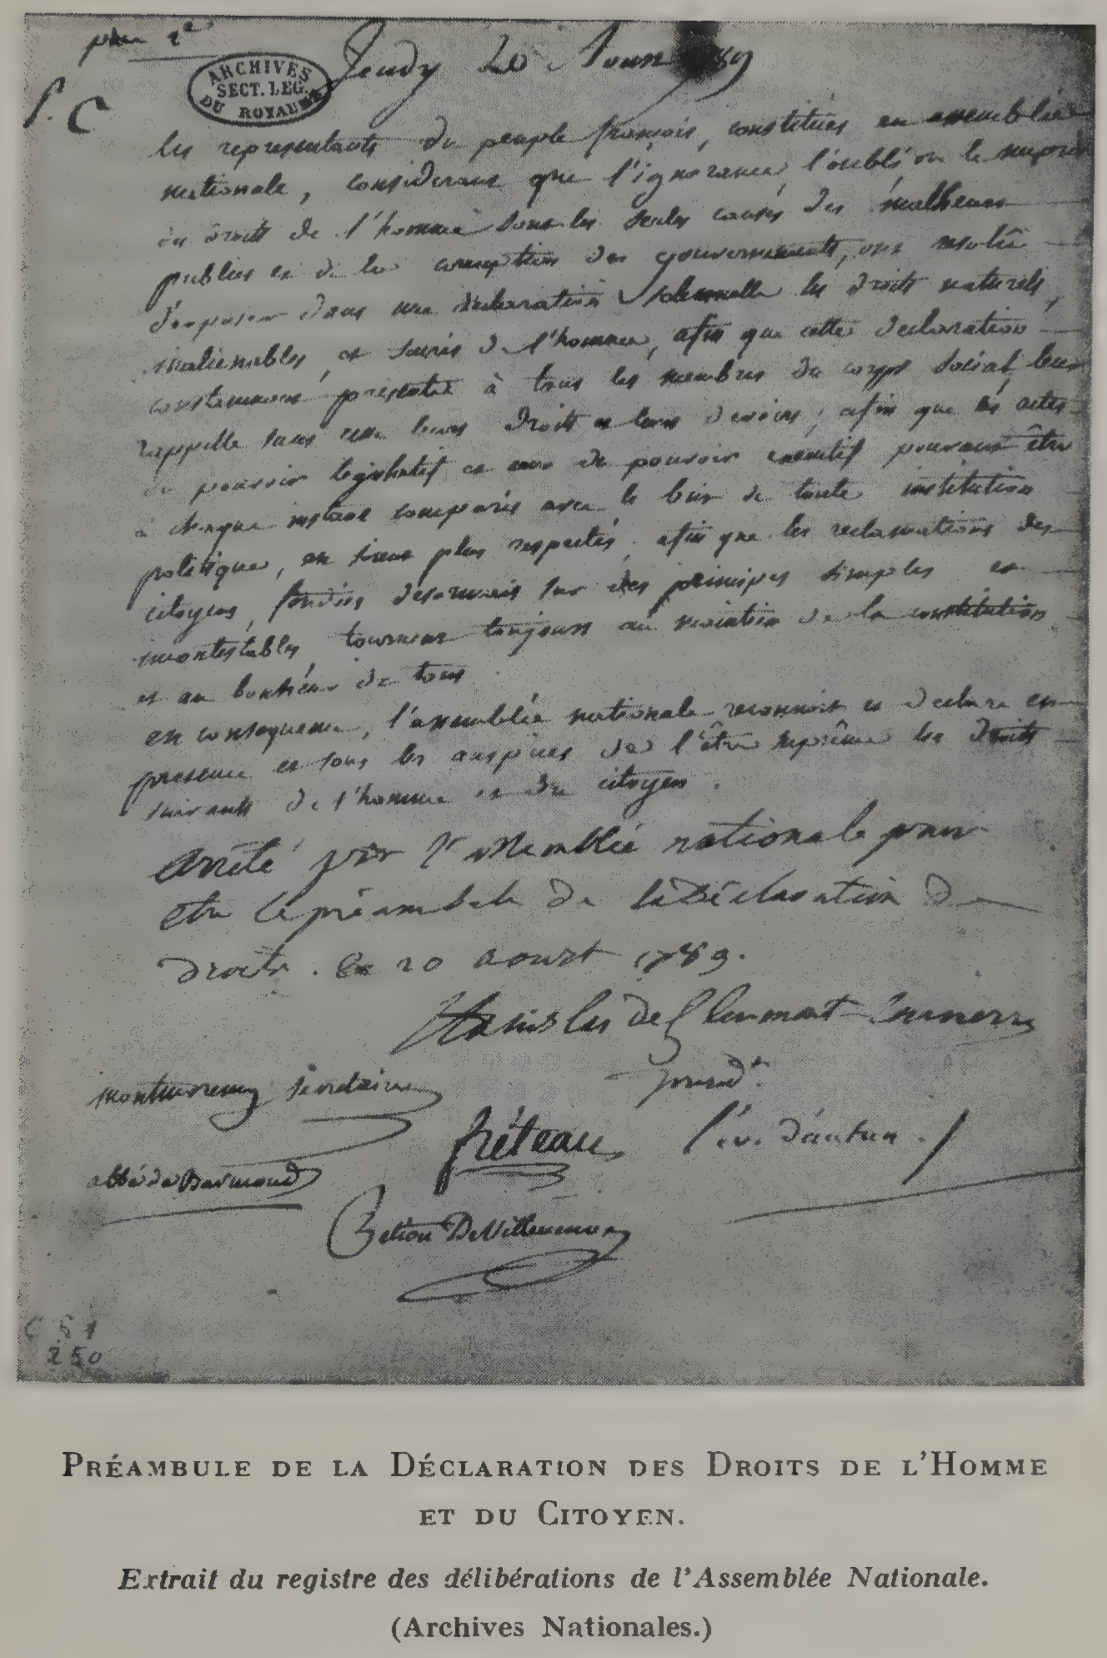 pour 2e
ARCHIVES
SECT. LEG.
DU ROYAUME
Jeudy 20 Aoust 89
P. C
les representants du peuple françois, constitués en assemblée
nationale, considerant que l'ignorance, l'oubli ou le mepris
des droits de l'homme sont les seules causes des malheurs
publics et de la corruption des gouvernements, ont resolu
d'exposer dans une declaration solemnelle les droits naturels,
inalienables, et sacrés de l'homme, afin que cette declaration
constamment presente à tous les membres du corps social, leur
rappelle sans cesse leurs droits et leurs devoirs; afin que les actes
du pouvoir legislatif et ceux du pouvoir executif pouvant être
à chaque instant comparés avec le but de toute institution
politique, en soient plus respectés; afin que les reclamations des
citoyens, fondées desormais sur des principes simples et
incontestables tournent toujours au maintien de la constitution
et au bonheur de tous.
en consequence, l'assemblée nationale reconnoit et declare en
presence et sous les auspices de l'être suprême les droits
suivants de l'homme et du citoyen.
arrêté par l'assemblée nationale pour
etre le préambule de la Déclaration des
droits. Ce 20 aoust 1789.
Stanislas de Clermont-Tonnerre
présidt.
Montmorency secretaire
fréteau
l'év. d'autun.
abbé de Barmond
Petion De Villeneuve
C § 1
250
PRÉAMBULE DE LA DÉCLARATION DES DROITS DE L'HOMME
ET DU CITOYEN.
Extrait du registre des délibérations de l'Assemblée Nationale.
(Archives Nationales.)